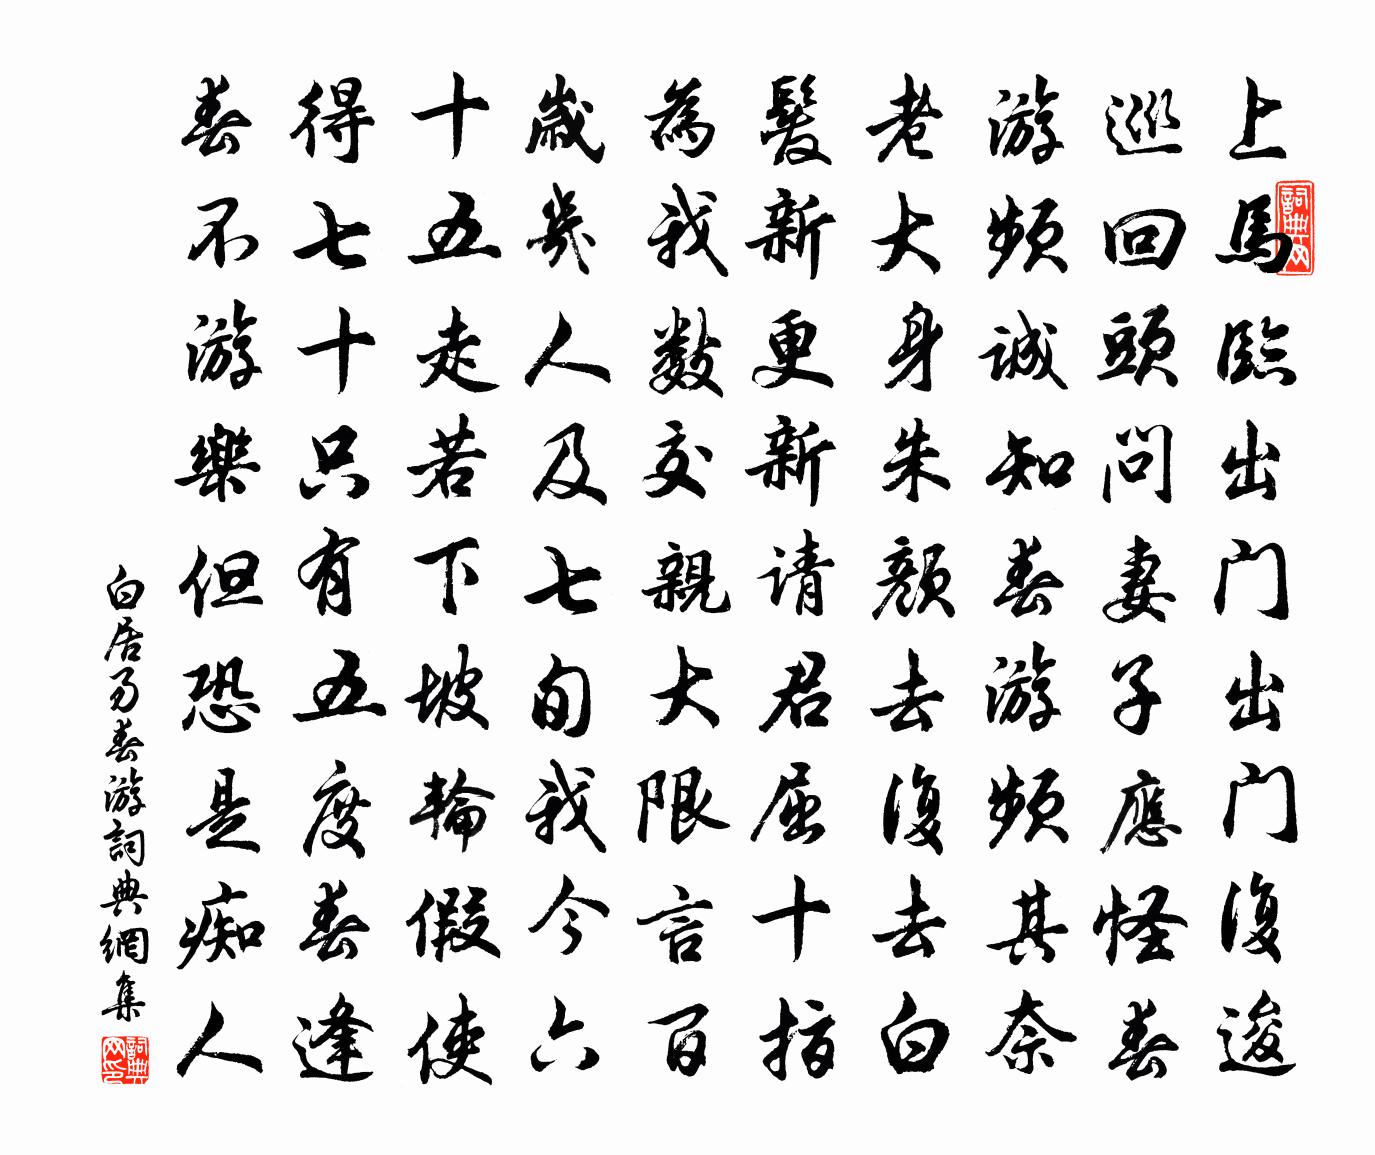 上馬臨出门出门復逡
巡回頭問妻子應怪春
游頻誠知春游頻其奈
老大身朱顏去復去白
髮新更新请君屈十指
為我數交親大限言百
歲幾人及七旬我今六
十五走若下坡輪假使
得七十只有五度春逢
春不游樂但恐是痴人
白居易春游詞典網集
詞典网
詞典网印